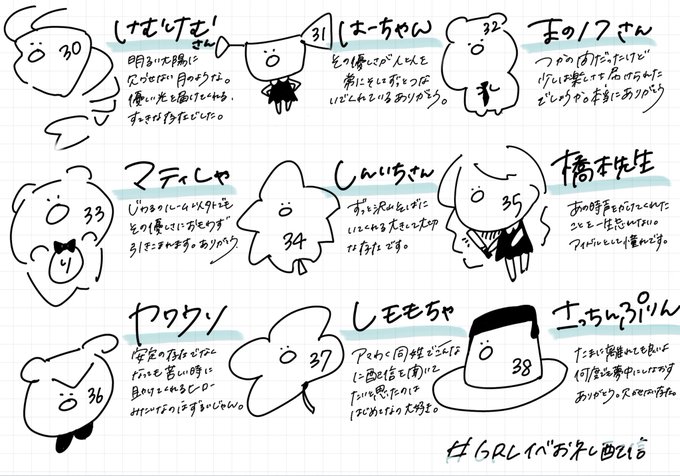 30
けむけむさん
明るい太陽に
欠かせない月のような。
優しい光を届けてくれる、
すてきな存在でした。
31
はーちゃん
その優しさが人と人を
常にそしてずっとつな
いでくれているありがとう。
32
まのノフさん
つかの間だったけど
少しは楽しさを届けられた
でしょうか。本当にありがとう
33
り
マティしゃ
じわるのルーム以外でも
その優しさにおもわず
引きこまれます。ありがとう
34
しんいちさん
ずっと沢山そばに
いてくれる大きくて大切
な存在です。
35
橋本先生
あの時声をかけてくれた
ことを一生忘れない。
アイドルとして憧れです。
36
カワウソ
安定の存在でなく
なっても苦しい時に
助けてくれるヒーロー
みたいなのはずるいじゃん。
37
しももちゃ
アマわく同姓でこんな
に配信を聞いて
たいと思ったのは
はじめてなの大好き。
38
さっちんぷりん
たまに離れても良いよ
何度でも夢中にしなおす
ありがとう。欠かせない存在。
#GRレイベお礼配信